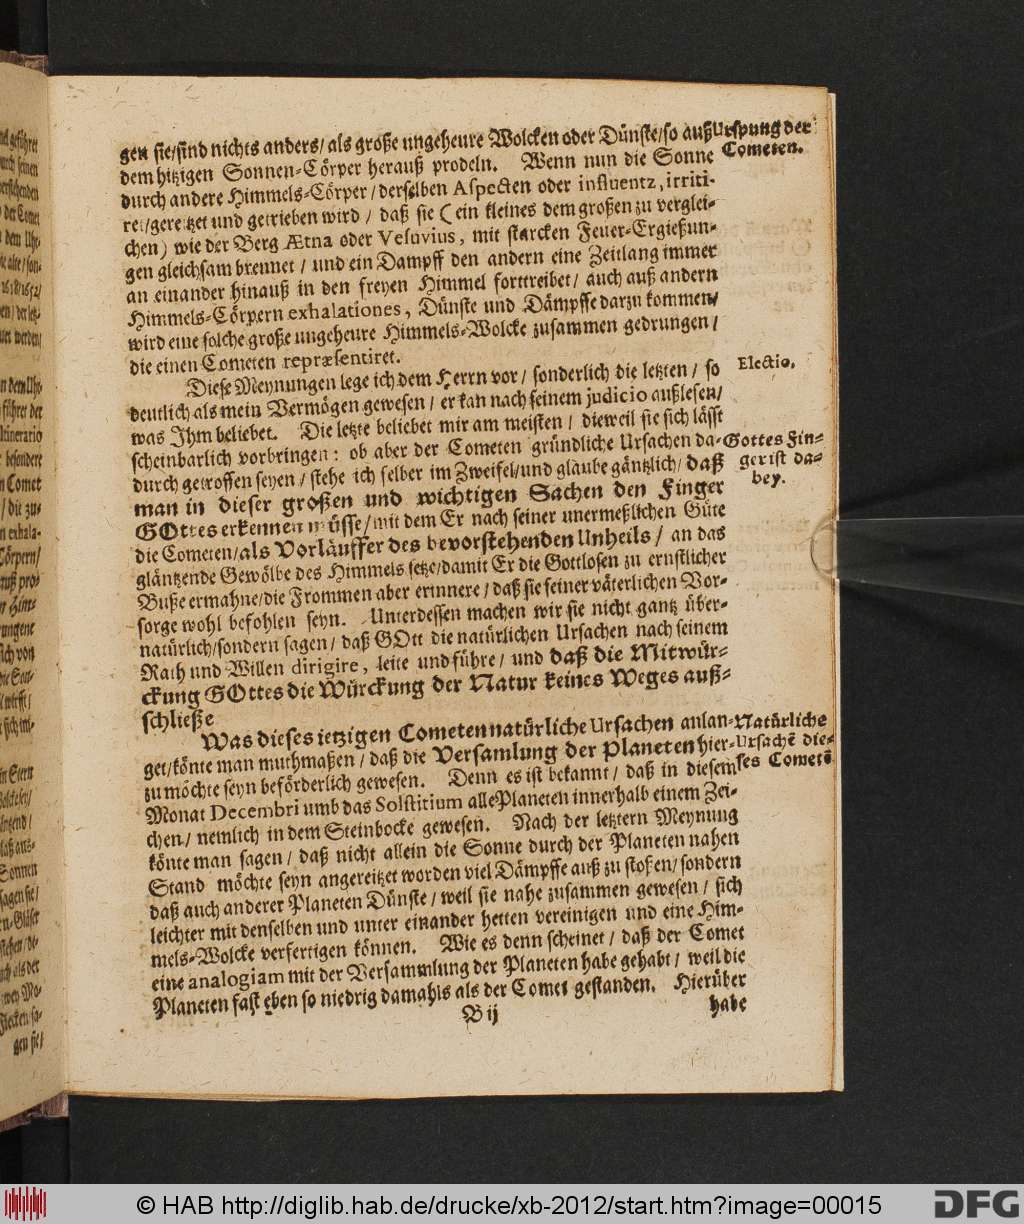 gen sie/sind nichts anders/ als große ungeheure Wolcken oder Dünste/so auß
Urspung der
Cometen.
dem hitzigen Sonnen-Cörper herauß prodeln. Wenn nun die Sonne
durch andere Himmels-Cörper/ derselben Aspecten oder influentz, irriti-
ret/gereitzet und getrieben wird / daß sie ( ein kleines dem großen zu verglei-
chen) wie der Berg Ætna oder Vesuvius, mit starcken Feuer-Ergießun-
gen gleichsam brennet / und ein Dampff den andern eine Zeitlang immer
an einander hinauß in den freyen Himmel forttreibet/ auch auß andern
Himmels-Cörpern exhalationes, Dünste und Dämpffe darzu kommen/
wird eine solche große ungeheure Himmels-Wolcke zusammen gedrungen /
die einen Cometen repræsentiret.
Diese Meynungen lege ich dem Herrn vor/ sonderlich die letzten / so
Electio.
deutlich als mein Vermögen gewesen/ er kan nach seinem judicio außlesen/
was Ihm beliebet. Die letzte beliebet mir am meisten / dieweil sie sich lässt
scheinbarlich vorbringen: ob aber der Cometen gründliche Ursachen da-
Gottes Fin-
ger ist da-
bey.
durch getroffen seyen / stehe ich selber im Zweifel/und glaube gäntzlich/ daß
man in dieser großen und wichtigen Sachen den Finger
GOttes erkennen müsse/mit dem Er nach seiner unermeßlichen Güte
die Cometen/als Vorläuffer des bevorstehenden Unheils / an das
gläntzende Gewölbe des Himmels setze/damit Er die Gottlosen zu ernstlicher
Buße ermahne/die Frommen aber erinnere / daß sie seiner väterlichen Vor-
sorge wohl befohlen seyn. Unterdessen machen wir sie nicht gantz über-
natürlich/sondern sagen/ daß GOtt die natürlichen Ursachen nach seinem
Rath und Willen dirigire, leite und führe/ und daß die Mitwür-
ckung GOttes die Würckung der Natur keines Weges auß-
schließe
Was dieses ietzigen Cometen natürliche Ursachen anlan-
Natürliche
Ursachē die-
ses Cometē
get/könte man muthmaßen/ daß die Versamlung der Planeten hier-
zu möchte seyn beförderlich gewesen. Denn es ist bekannt/ daß in diesem
Monat Decembri umb das Solstitium alle Planeten innerhalb einem Zei-
chen/ nemlich in dem Steinbocke gewesen. Nach der letztern Meynung
könte man sagen / daß nicht allein die Sonne durch der Planeten nahen
Stand möchte seyn angereitzet worden viel Dämpffe auß zu stoßen/ sondern
daß auch anderer Planeten Dünste/ weil sie nahe zusammen gewesen / sich
leichter mit denselben und unter einander hetten vereinigen und eine Him-
mels-Wolcke verfertigen können. Wie es denn scheinet/ daß der Comet
eine analogiam mit der Versammlung der Planeten habe gehabt/ weil die
Planeten fast eben so niedrig damahls als der Comet gestanden. Hierüber
B ij
habe
© HAB http://diglib.hab.de/drucke/xb-2012/start.htm?image=00015
DFG